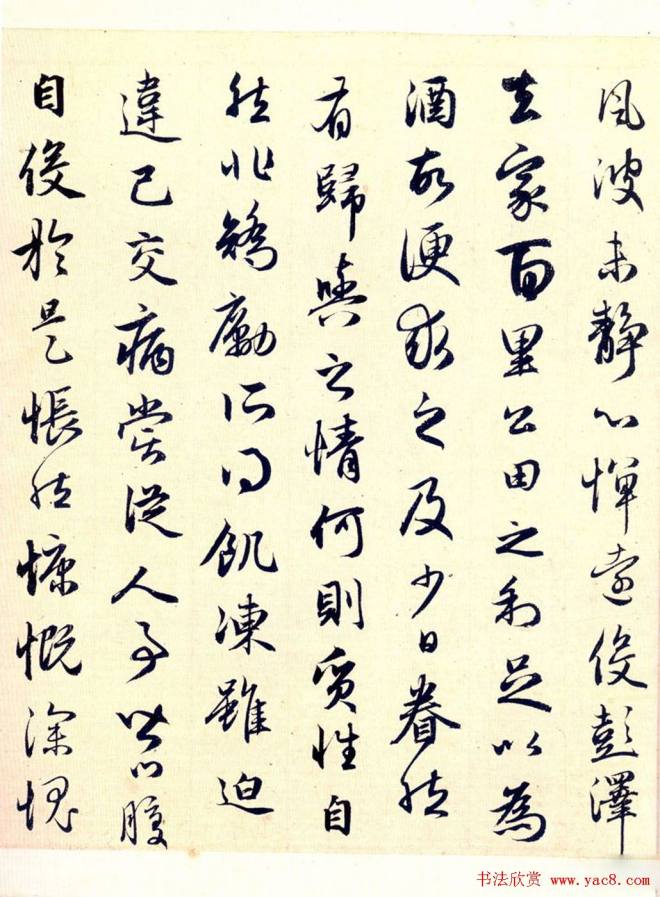 風波未靜心憚遠役彭澤
去家百里公田之利足以為
酒故便求之及少日眷然
有歸歟之情何則質性自
然非矯勵所得飢凍雖迫
違己交病嘗從人事皆口腹
自役於是悵然慷慨深愧
书法欣赏 www.yac8.com